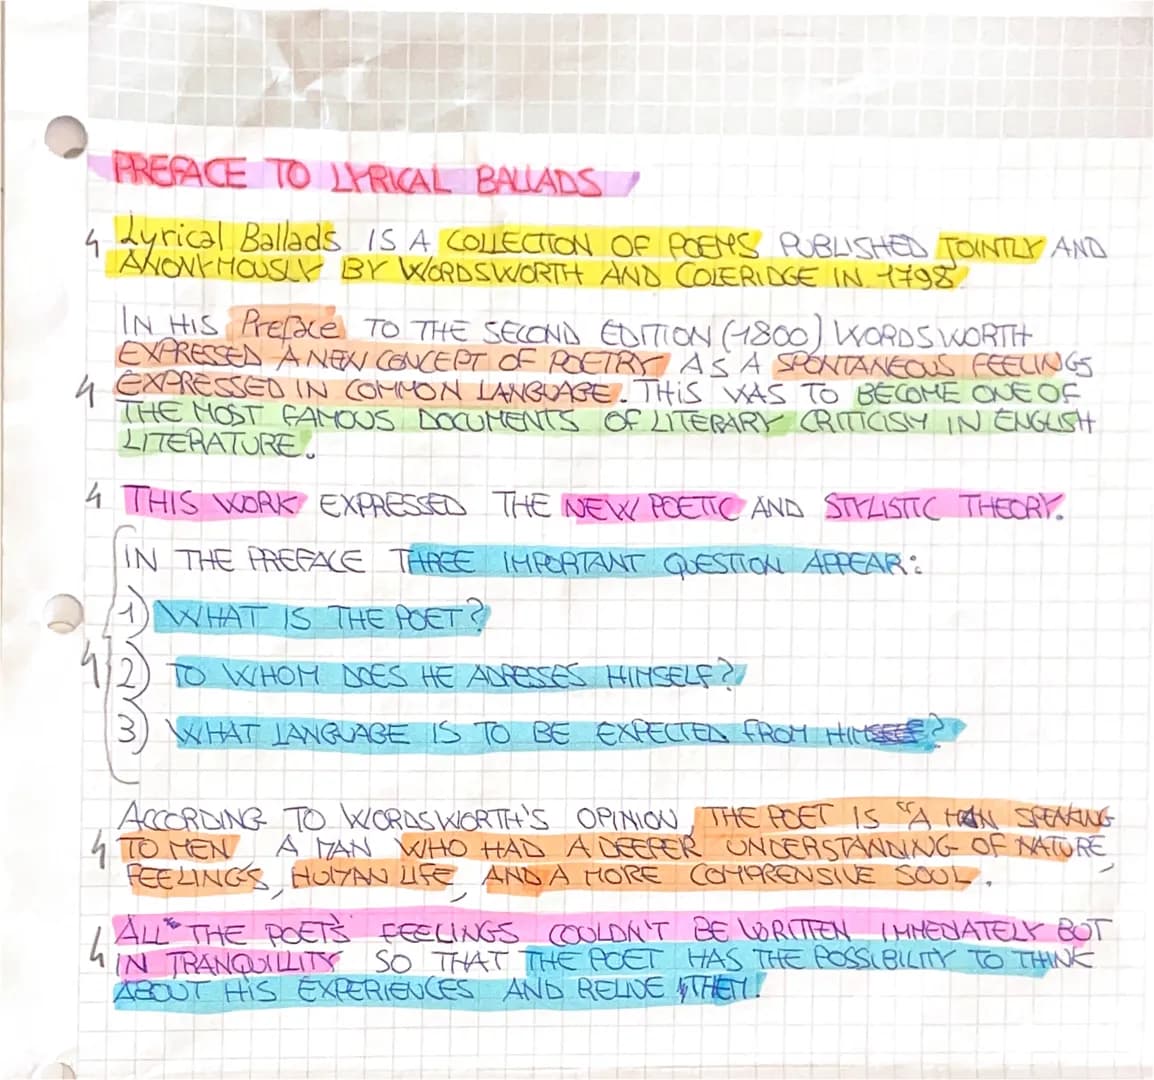 PREFACE TO LYRICAL BALLADS
Lyrical Ballads IS A COLLECTION OF POEMS PUBLISHED JOINTLY AND
ANONYMOUSLY BY WORDSWORTH AND COLERIDGE IN 1798
IN HIS Preface TO THE SECOND EDITION (1800) WORDSWORTH
EXPRESSED A NEW CONCEPT OF POETRY AS A SPONTANEOUS FEELINGS
EXPRESSED IN COMMON LANGUAGE. THIS WAS TO BECOME ONE OF
THE MOST FAMOUS DOCUMENTS OF LITERARY CRITICISM IN ENGLISH
LITERATURE.
THIS WORK EXPRESSED THE NEW POETIC AND STYLISTIC THEORY.
IN THE PREFACE THREE IMPORTANT QUESTION APPEAR:
1) WHAT IS THE POET?
2) TO WHOM DOES HE ADRESSES HIMSELF?
3) WHAT LANGUAGE IS TO BE EXPECTED FROM HIM?
ACCORDING TO WORDSWORTH'S OPINION THE POET IS "A MAN SPEAKING
TO MEN, A MAN WHO HAD A DEEPER UNDERSTANDING OF NATURE,
FEELINGS, HUMAN LIFE, AND A MORE COMPRENSIVE SOUL.
ALL THE POET'S FEELINGS COULDN'T BE WRITTEN IMMEDIATELY BOT
IN TRANQUILLITY SO THAT THE POET HAS THE POSSIBILITY TO THINK
ABOUT HIS EXPERIENCES AND RELIVE THEM.